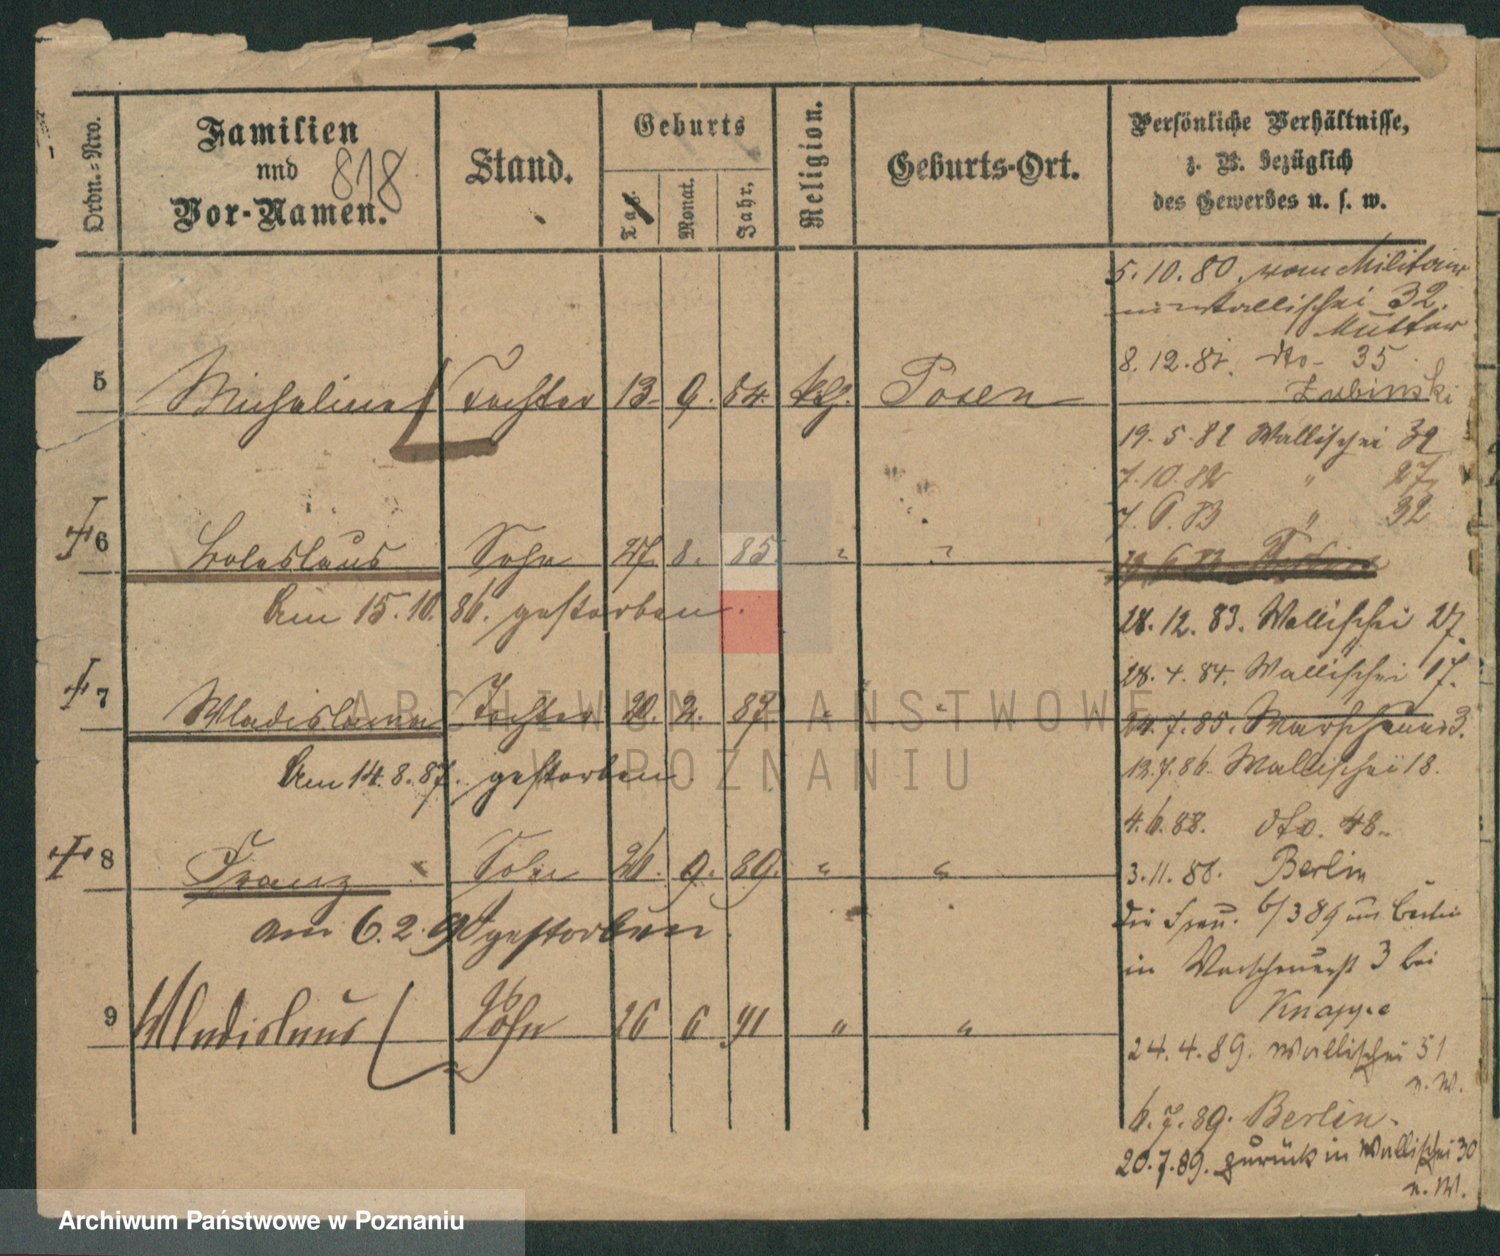 Ordn.=Nro.
Familien
und
Vor-Namen.
818
Stand.
Geburts
Tag.
Monat.
Jahr.
Religion.
Geburts-Ort.
Persönliche Verhältnisse,
z. B. bezüglich
des Gewerbes u. s. w.
5 Michalina Tochter 13 9. 84. ktl. Posen
6 Boleslaus Sohn 27. 8. 85. " "
Am 15.10.86. gestorben.
7 Wladislawa Tochter 20. 2. 87. " "
Am 14.8.87. gestorben.
8 Franz Sohn 26. 9. 89. " "
am 6.2.90 gestorben.
9 Wladislaus Sohn 26 6 91 " "
5.10.80. vom Militair
Wallischei 32.
Mutter
8.12.81. dto 35
Zubinski
19.5.82 Wallischei 32
7.10.82 " 27
7.6.83 " 32
28.12.83. Wallischei 27.
28.4.84. Wallischei 17.
24.7.85. 3.
12.7.86. Wallischei 18.
4.6.88. dto. 48.
3.11.88. Berlin
die Frau. 6/3 89 aus Berlin
in 3 bei
Knappe
24.4.89. Wallischei 51
n. W.
6.7.89. Berlin.
20.7.89. zurück in Wallischei 30
n. W.
ARCHIWUM PAŃSTWOWE
W POZNANIU
Archiwum Państwowe w Poznaniu